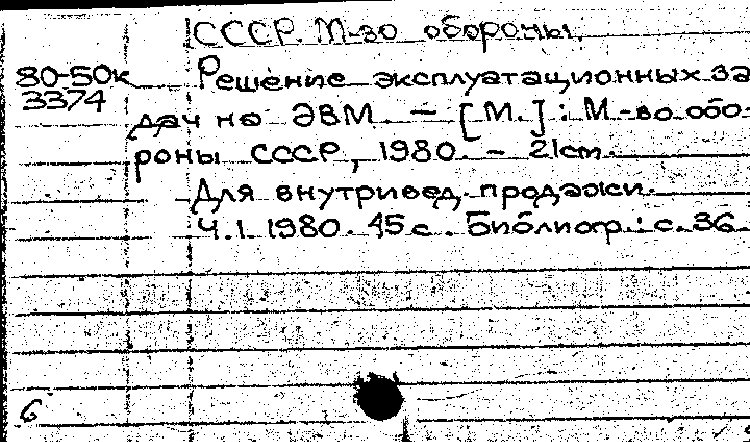 СССР. М-во обороны.
80-50к Решение эксплуатационных за
3374
дач на ЭВМ. — [М.] : М-во обо
роны СССР, 1980. - 21cm.
Для внутривед. продажи.
Ч.1. 1980. 45 с. Библиогр.: с. 36
6